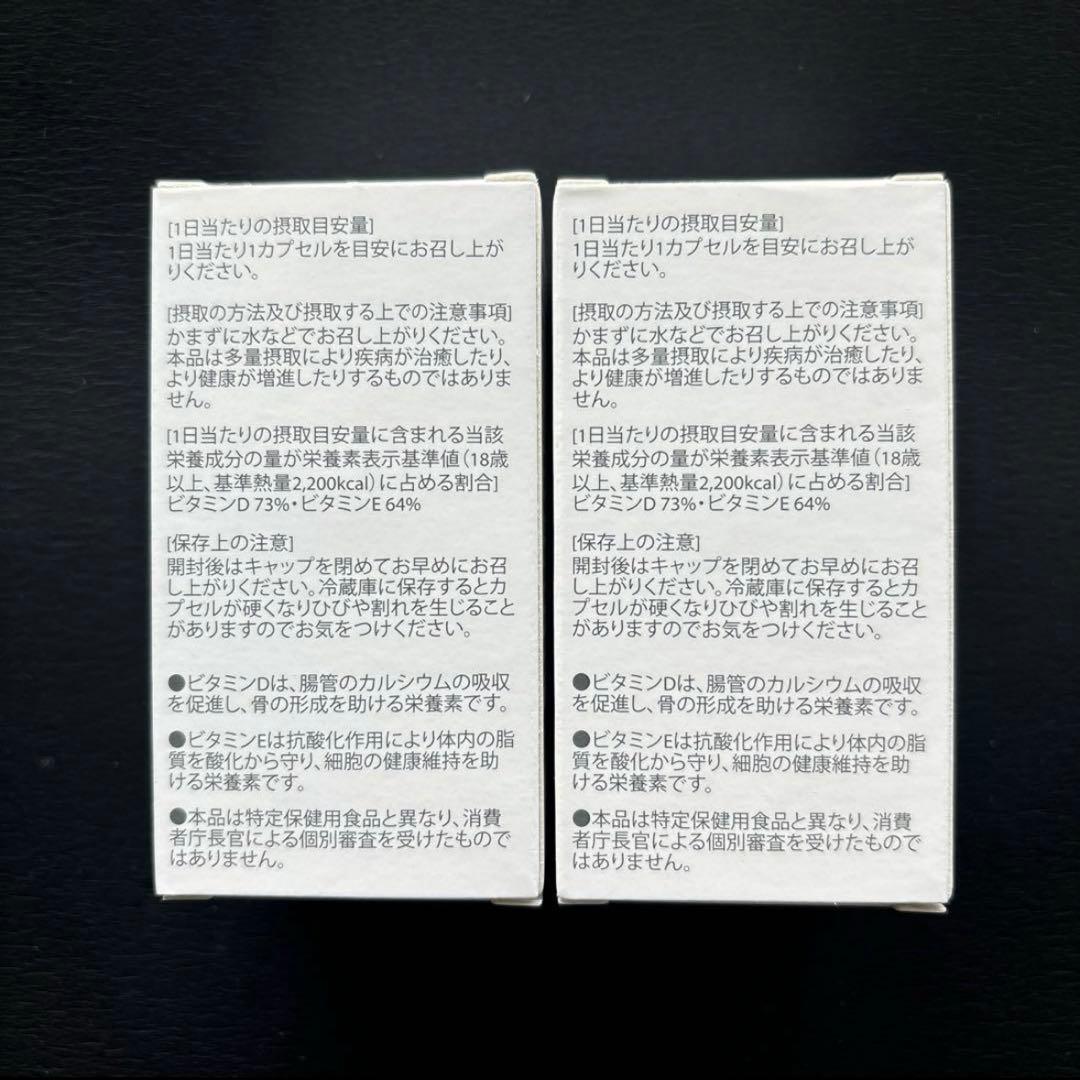 [1日当たりの摂取目安量]
1日当たり1カプセルを目安にお召し上が
りください。
[摂取の方法及び摂取する上での注意事項]
かまずに水などでお召し上がりください。
本品は多量摂取により疾病が治癒したり、
より健康が増進したりするものではありま
せん。
[1日当たりの摂取目安量に含まれる当該
栄養成分の量が栄養素表示基準値（18歳
以上、基準熱量2,200kcal）に占める割合]
ビタミンD 73%・ビタミンE 64%
[保存上の注意]
開封後はキャップを閉めてお早めにお召
し上がりください。冷蔵庫に保存するとカ
プセルが硬くなりひびや割れを生じること
がありますのでお気をつけください。
●ビタミンDは、腸管のカルシウムの吸収
を促進し、骨の形成を助ける栄養素です。
●ビタミンEは抗酸化作用により体内の脂
質を酸化から守り、細胞の健康維持を助
ける栄養素です。
●本品は特定保健用食品と異なり、消費
者庁長官による個別審査を受けたもので
はありません。
[1日当たりの摂取目安量]
1日当たり1カプセルを目安にお召し上が
りください。
[摂取の方法及び摂取する上での注意事項]
かまずに水などでお召し上がりください。
本品は多量摂取により疾病が治癒したり、
より健康が増進したりするものではありま
せん。
[1日当たりの摂取目安量に含まれる当該
栄養成分の量が栄養素表示基準値（18歳
以上、基準熱量2,200kcal）に占める割合]
ビタミンD 73%・ビタミンE 64%
[保存上の注意]
開封後はキャップを閉めてお早めにお召
し上がりください。冷蔵庫に保存するとカ
プセルが硬くなりひびや割れを生じること
がありますのでお気をつけください。
●ビタミンDは、腸管のカルシウムの吸収
を促進し、骨の形成を助ける栄養素です。
●ビタミンEは抗酸化作用により体内の脂
質を酸化から守り、細胞の健康維持を助
ける栄養素です。
●本品は特定保健用食品と異なり、消費
者庁長官による個別審査を受けたもので
はありません。